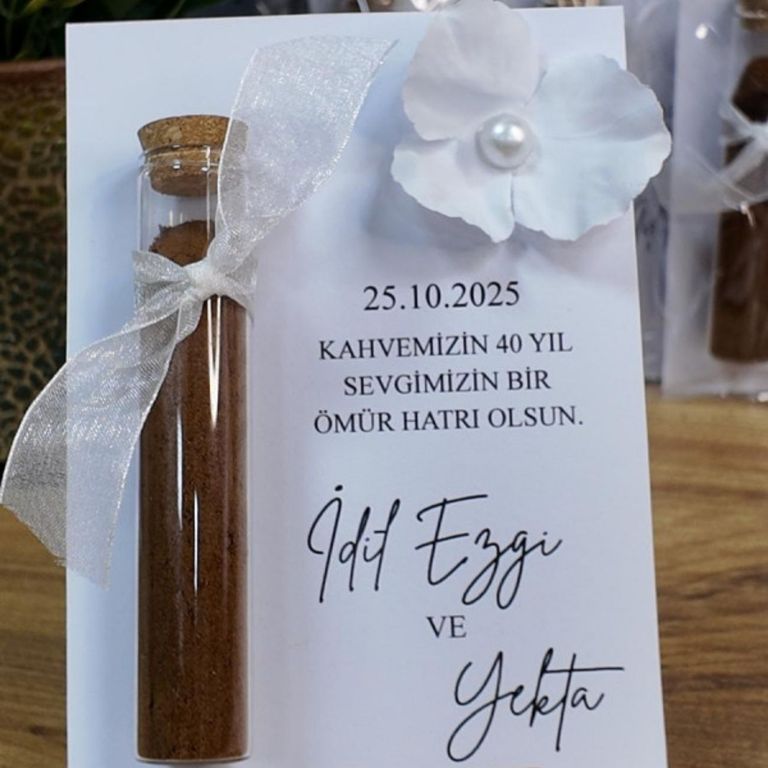 25.10.2025
KAHVEMİZİN 40 YIL
SEVGİMİZİN BİR
ÖMÜR HATRI OLSUN.
İdil Ezgi
VE
Yekta